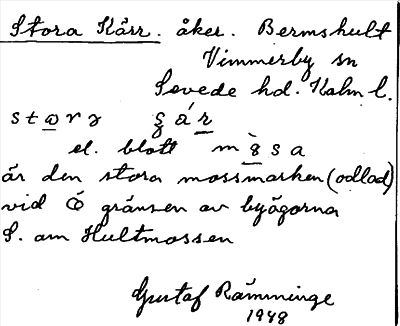 Stora Kärr. åker. Bermshult
Vimmerby sn
Sevede hd. Kalm l.
el. blott
är den stora mossmarken (odlad)
vid Ö gränsen av byägorna
S. om Hultmossen
Gustaf Rämminge
1948